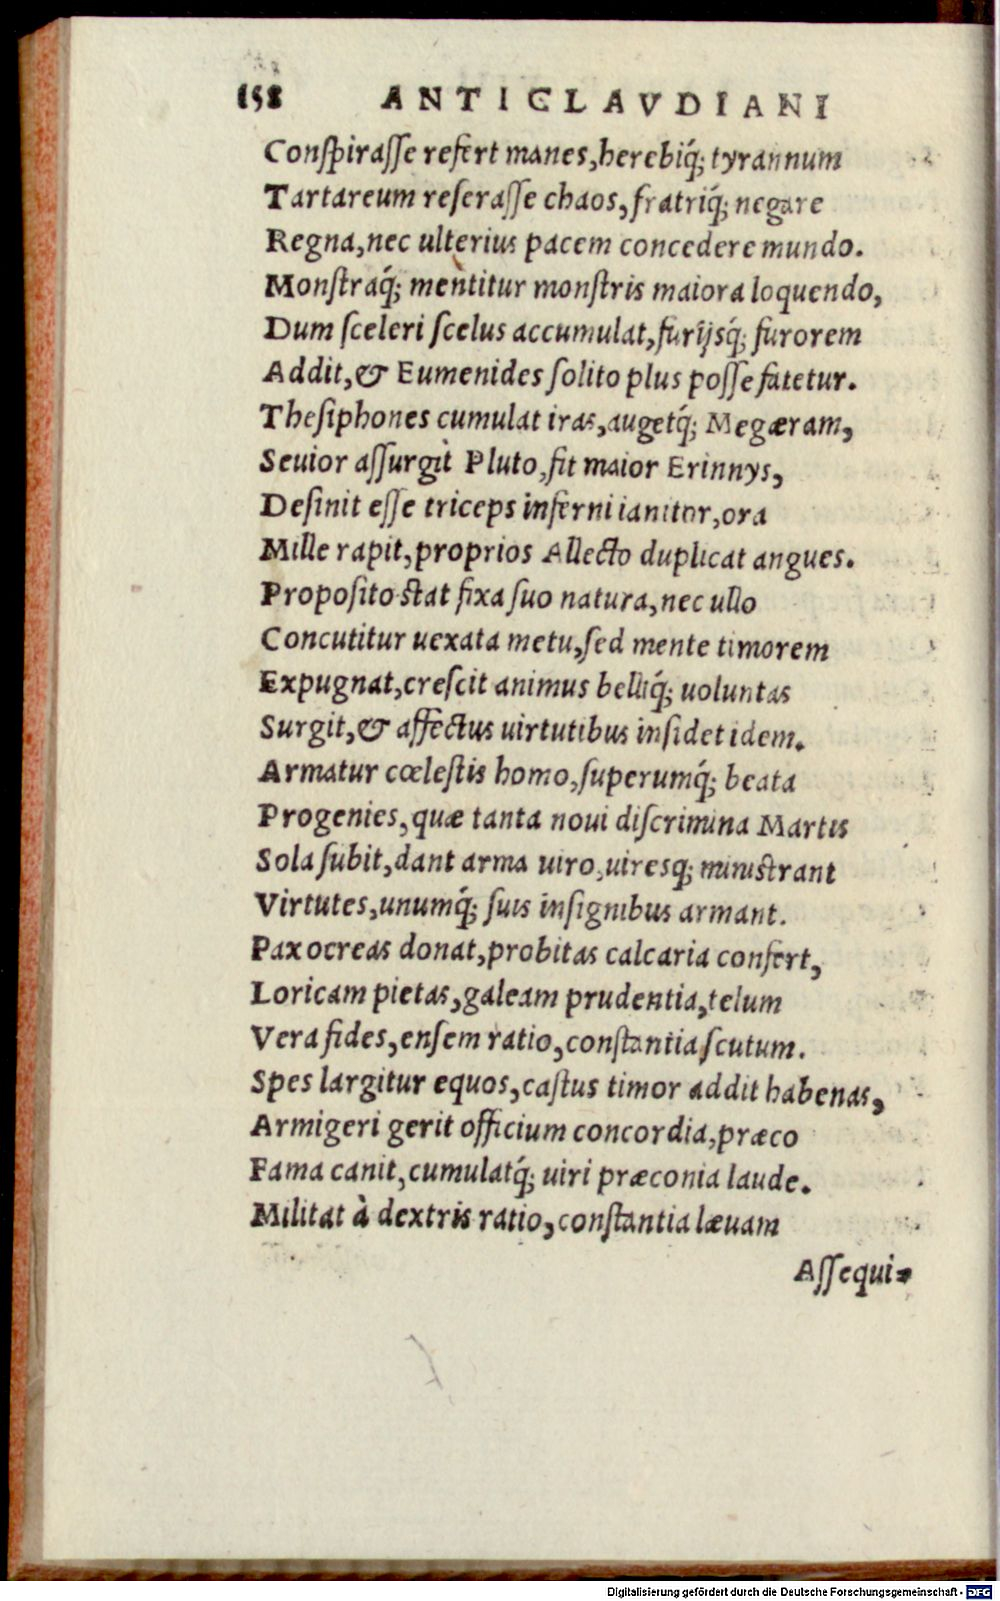 158 ANTICLAVDIANI
Conspiraſſe refert manes, herebiq́; tyrannum
Tartareum reſeraſſe chaos, fratriq́; negare
Regna, nec ulterius pacem concedere mundo.
Monſtraq́; mentitur monſtris maiora loquendo,
Dum ſceleri ſcelus accumulat, furijsq́; furorem
Addit, & Eumenides ſolito plus poſſe fatetur.
Theſiphones cumulat iras, augetq́; Megæram,
Seuior aſſurgit Pluto, fit maior Erinnys,
Deſinit eſſe triceps inferni ianitor, ora
Mille rapit, proprios Allecto duplicat angues.
Propoſito ſtat fixa ſuo natura, nec ullo
Concutitur uexata metu, ſed mente timorem
Expugnat, creſcit animus belliq́; uoluntas
Surgit, & affectus uirtutibus inſidet idem.
Armatur cœleſtis homo, ſuperumq́; beata
Progenies, quæ tanta noui diſcrimina Martis
Sola ſubit, dant arma uiro, uiresq; miniſtrant
Virtutes, unumq́; ſuis inſignibus armant.
Pax ocreas donat, probitas calcaria confert,
Loricam pietas, galeam prudentia, telum
Vera fides, enſem ratio, conſtantia ſcutum.
Spes largitur equos, caſtus timor addit habenas,
Armigeri gerit officium concordia, præco
Fama canit, cumulatq́; uiri præconia laude.
Militat à dextris ratio, conſtantia læuam
Aſſequi-
Digitalisierung gefördert durch die Deutsche Forschungsgemeinschaft - DFG